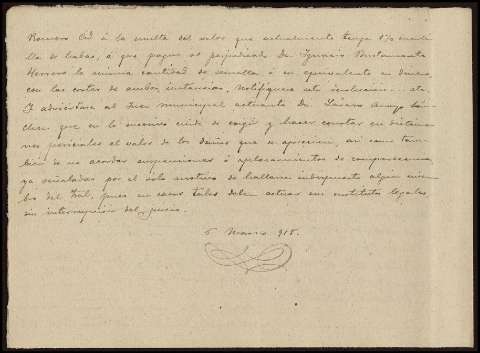 Romero Cid á la multa del valor que actualmente tenga 1½ cuarti
lla de habas, á que pague al perjudicado Dn Ignacio Bustamante
Herrero la misma cantidad de semilla ó su equivalente en dinero,
con las costas de ambas instancias, notifíquese esta
Y adviértase al Juez municipal actuante Dn Lázaro Arroyo Sán
chez que en lo sucesivo cuide de exigir y hacer constar en dictáme
nes periciales el valor de los daños que se aprecien, así como tam
bién de no acordar suspensiones ó aplazamientos de comparecencias
ya señaladas por el solo motivo de hallarse indispuesto algún miem
bro del Tral, pues en casos tales deben actuar sus sustitutos legales,
sin interrupción del juicio.
6 Marzo 915.